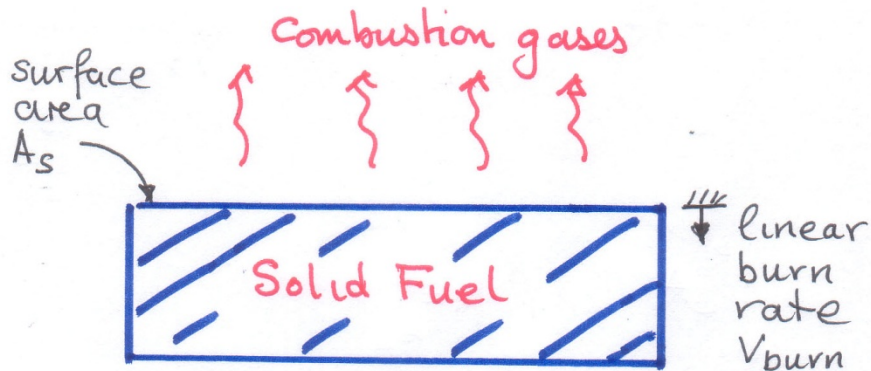 Combustion gases
surface
area
As
Solid Fuel
linear
burn
rate
Vburn